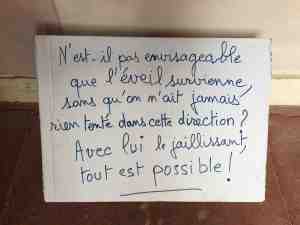 N'est-il pas envisageable
que l'éveil survienne
sans qu'on n'ait jamais
rien tenté dans cette direction ?
Avec lui le jaillissant,
tout est possible !